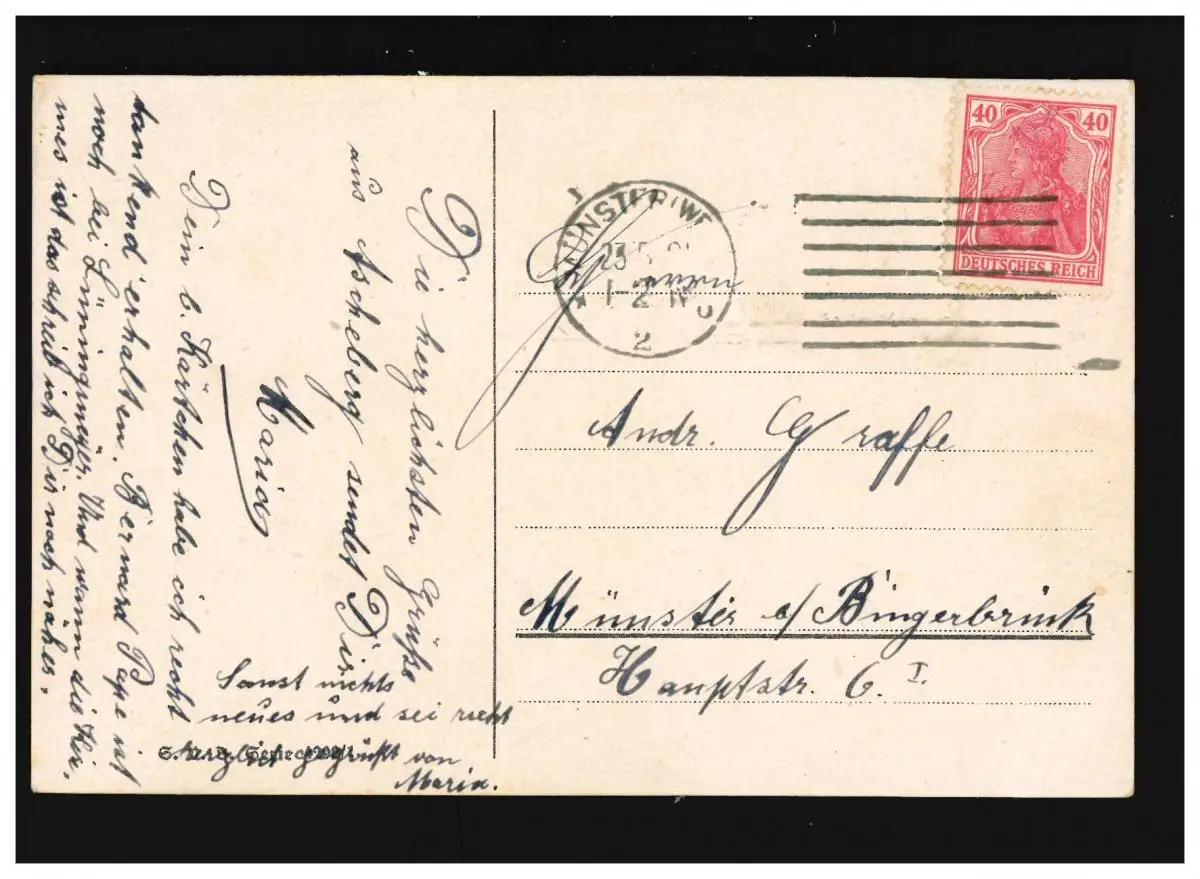 Die herzlichsten Grüße
aus Ascheberg sendet Dir
Maria
Dein b. Kärtchen habe ich recht
dankend erhalten. Bernard Pape ist
noch bei Lünningmeyer. Und wann die Kir-
mes ist das schreib ich Dir noch näher.
Sonst nichts
neues und sei recht
herzlich gegrüßt von
Maria.
MÜNSTER (WE
23
1-2 N
2
40 40
DEUTSCHES REICH
Herrn
Andr. Graffe
Münster a/ Bingerbrück
Hauptstr. 6. I.